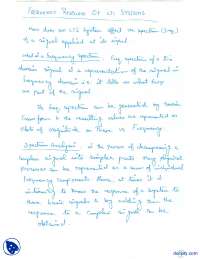 FREQUENCY RESPONSE OF LTI SYSTEMS
How does an LTI system affect the spectrum (freq.)
of a signal applied at its input
What is a frequency spectrum: Freq spectrum of a time
domain signal is a representation of the signal in
frequency domain i.e it tells us what freqs
are part of the signal
The freq spectrum can be generated by Fourier
Transform & the resulting values are represented as
plots of magnitude & Phase vs Frequency
Spectrum Analysis: is the process of decomposing a
complex signal into simpler parts. Many physical
processes can be represented as a sum of individual
frequency components. Hence, at times it is
interesting to know the response of a system to
these basic signals & by adding them the
response to a complex signal can be
obtained.
docsity.com